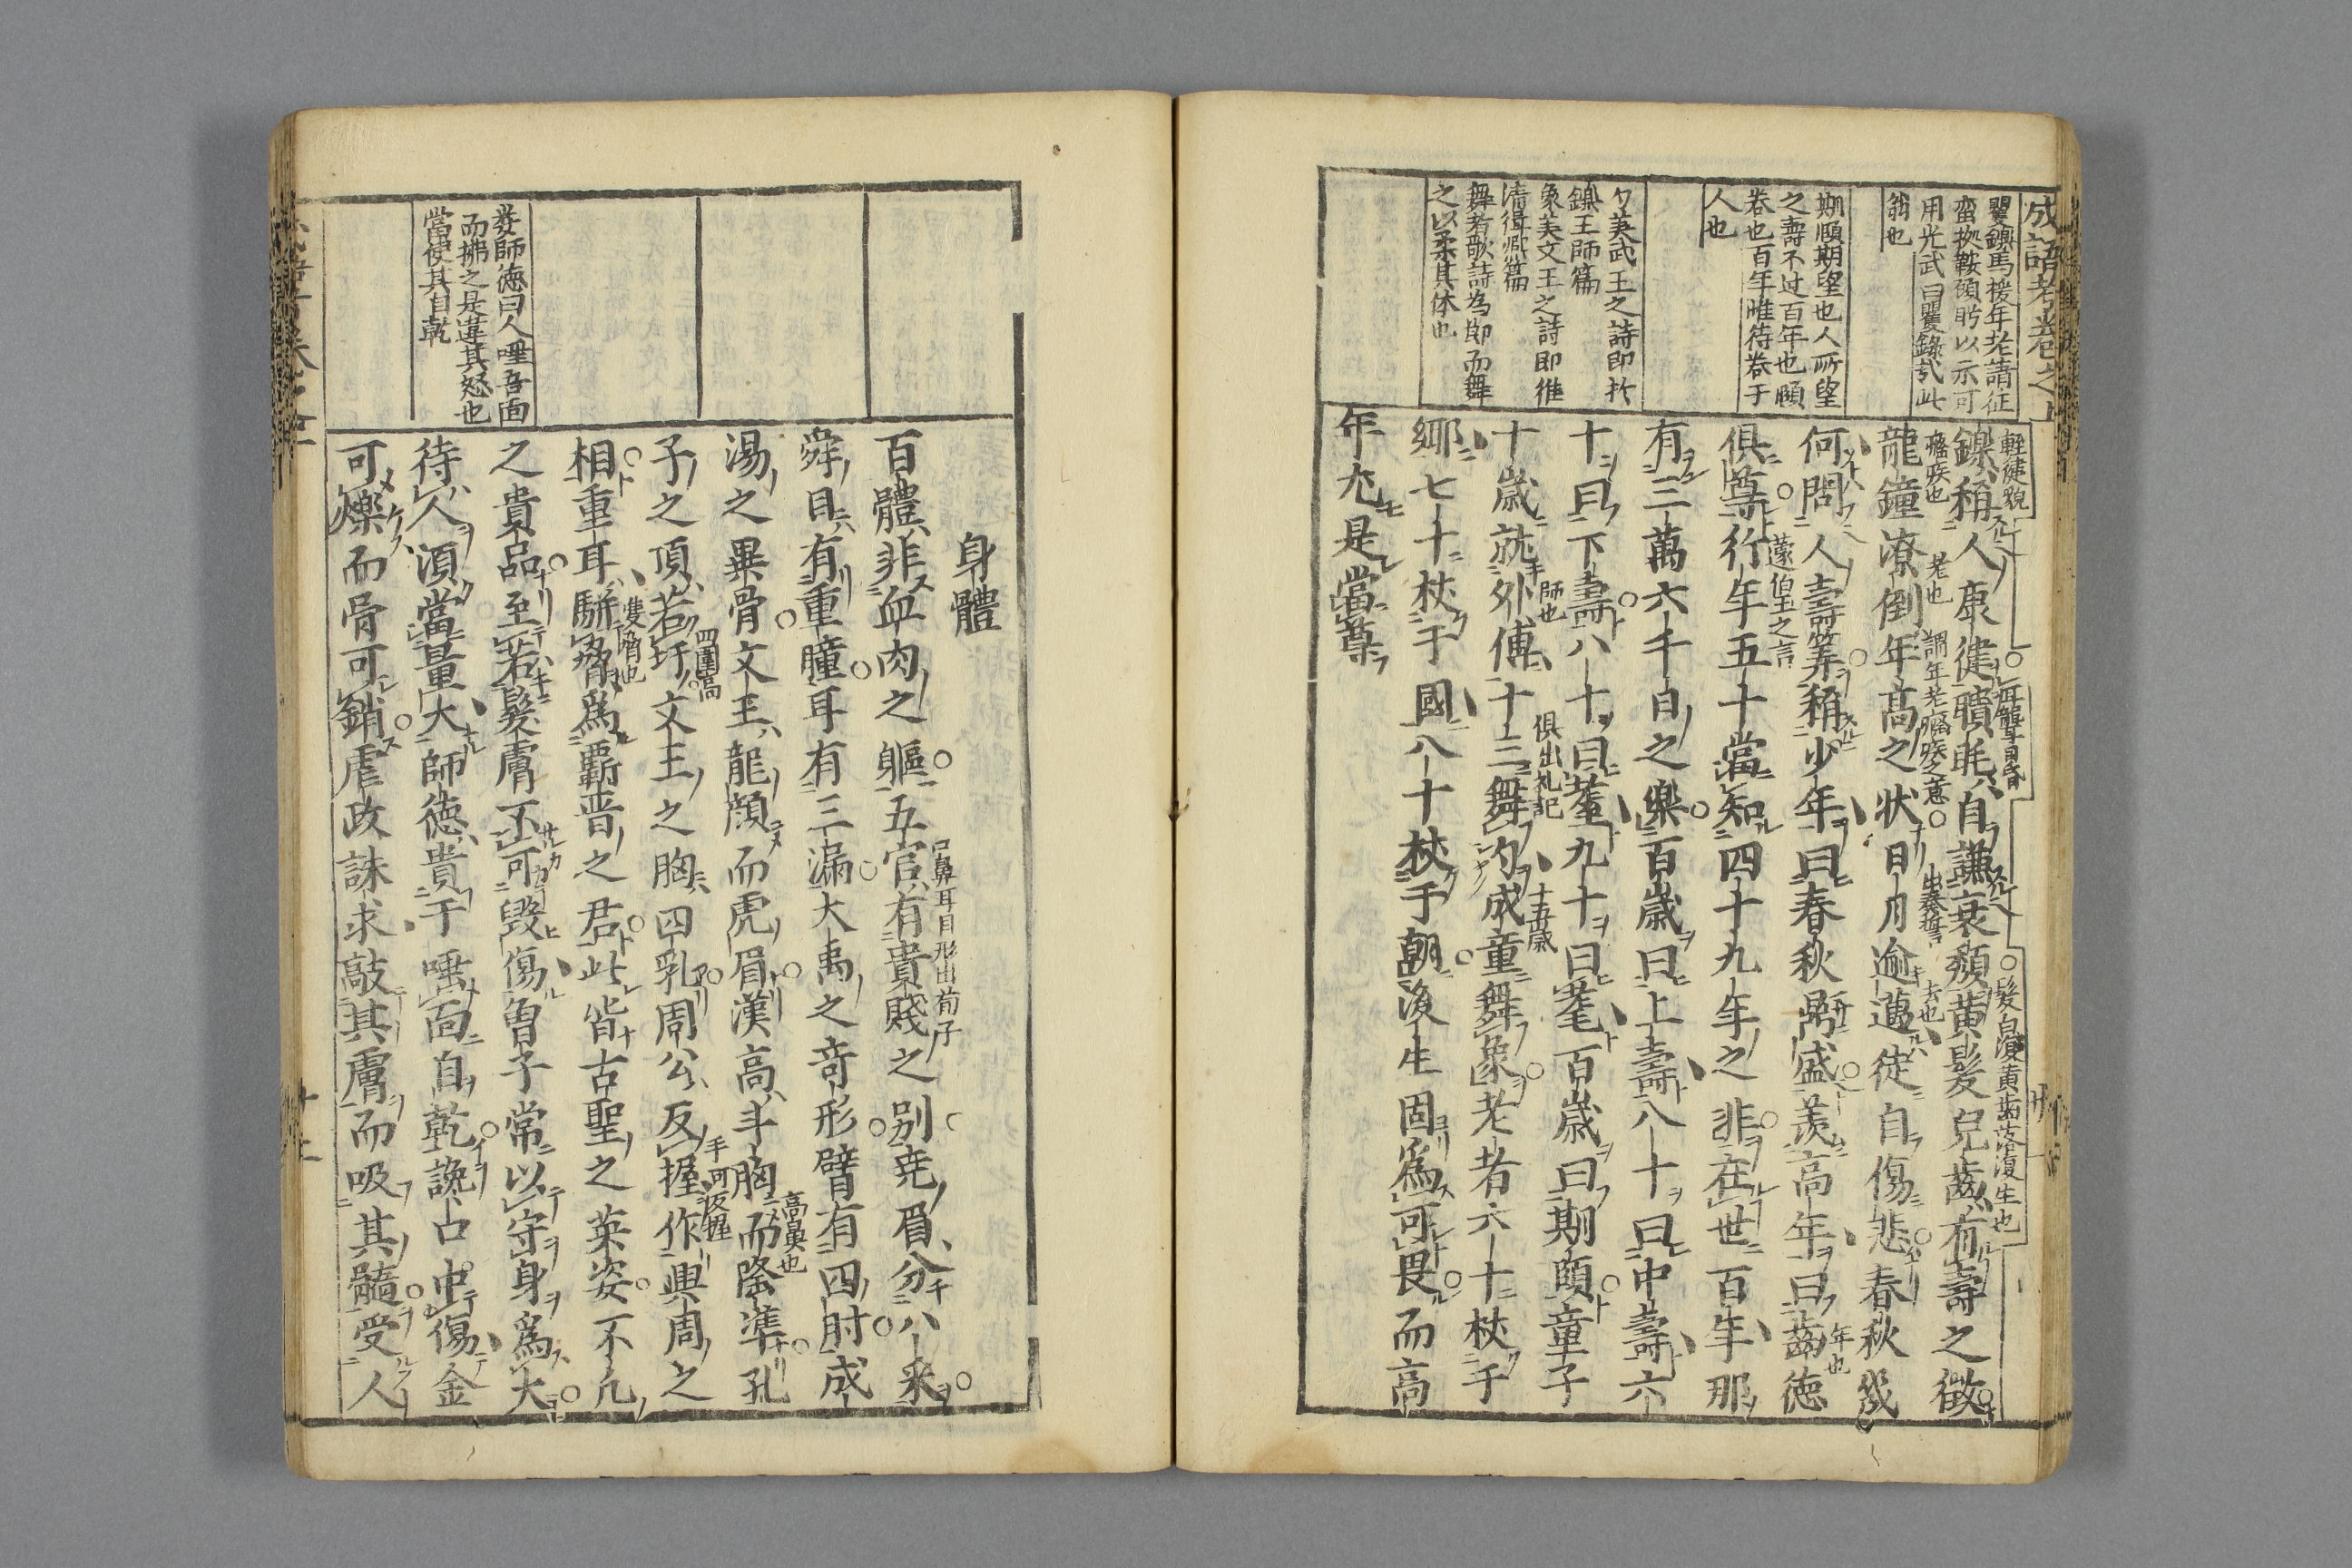 成語考卷之上
矍鑠馬援年老請征
蛮拠鞍顧眄以示可
用光武曰矍鑠哉此
翁也
期頤期望也人所望
之壽不过百年也頤
養也百年唯待養于
人也
勺美武王之詩即於
鑠王師篇
象美文王之詩即維
清緝熈篇
舞者歌詩為節而舞
之以柔其体也
輕健貌
耳聾目昏
髮白復黄齒落復生也
鑠稱人康健聵眊自謙衰頽黄髮兒齒有壽之徵
癃疾也
老也
謂年老癃疾之意
出秦誓
去也
龍鐘潦倒年高之狀日月逾邁徒自傷悲春秋幾
何問人壽筭稱少年曰春秋鼎盛羨高年曰齒德
年也
俱尊行年五十當知四十九年之非在世百年那
蘧伯玉之言
有三萬六千日之樂百歳曰上壽八十曰中壽六
十曰下壽八十曰耋九十曰耄百歳曰期頤童子
師也
俱出礼記
十五歳
十歳就外傅十三舞勺成童舞象老者六十杖于
郷七十杖于國八十杖于朝後生固爲可畏而高
年尤是當尊
身體
百體非血肉之軀五官有貴賤之别尭眉分八采
口鼻耳目形出荀子
舜目有重瞳耳有三漏大禹之竒形臂有四肘成
湯之異骨文王龍顔而虎眉漢高斗胸而隆準孔
高鼻也
子之頂若圩文王之胸四乳周公反握作興周之
四圍高
手可反握
相重耳駢脅爲覇晋之君此皆古聖之英姿不凢
隻脅也
之貴品至若髮膚不可毀傷曾子常以守身爲大
待人須當量大師徳貴于唾面自乾讒口中傷金
可爍而骨可銷虐政誅求敲其膚而吸其髓受人
婁師徳曰人唾吾面
而拂之是違其怒也
當使其自乾